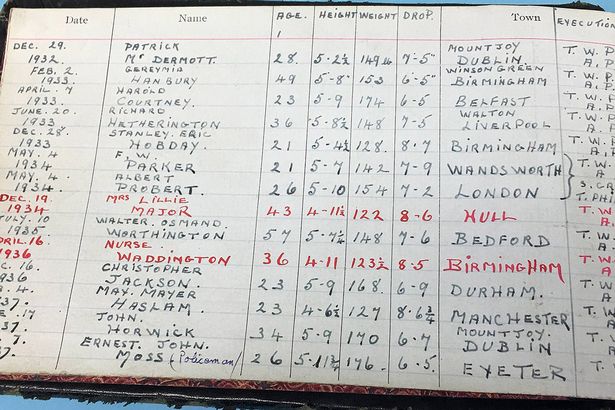 Date Name AGE. HEIGHT WEIGHT DROP. Town EXECUTION
DEC. 29. PATRICK MOUNTJOY T. W. P
1932. Mc DERMOTT. 28. 5-2½ 149½ 7-5" DUBLIN. A. P.
FEB. 2. GEREYMIA WINSON GREEN
1933. HANBURY 49 5-8" 153 6-5" BIRMINGHAM
APRIL. 7 HAROLD
1933. COURTNEY. 23 5-9 174 6-5 BELFAST
JUNE. 20. RICHARD. WALTON
1933. HETHERINGTON 36 5-8½ 148 7-5 LIVERPOOL
DEC. 28 STANLEY. ERIC
1933 HOBDAY. 21 5-4½ 128. 8.7 BIRMINGHAM
MAY. 4 F. W.
1934 PARKER 21 5-7 142 7-9 WANDSWORTH
MAY. 4. ALBERT
1934. PROBERT. 26 5-10 154 7-2 LONDON
DEC. 19. MRS LILLIE
1934 MAJOR 43 4-11½ 122 8-6 HULL T. W.
JULY. 10 WALTER. OSMAND.
1935 WORTHINGTON 57 5-7¼ 148 7-6 BEDFORD
APRIL. 16. NURSE ..
1936 WADDINGTON 36 4-11 123½ 8.5 BIRMINGHAM
C. 16. CHRISTOPHER
936 JACKSON. 23 5-9 168 6-9 DURHAM.
4. MAX. MAYER
37. HASLAM. 23 4-6½ 127 8.6¾ MANCHESTER
17 JOHN. MOUNTJOY.
37. HORWICK 34 5-9 170 6-7 DUBLIN
7. ERNEST. JOHN.
37. MOSS (Policeman) 26 5-11½ 176. 6.5 EXETER